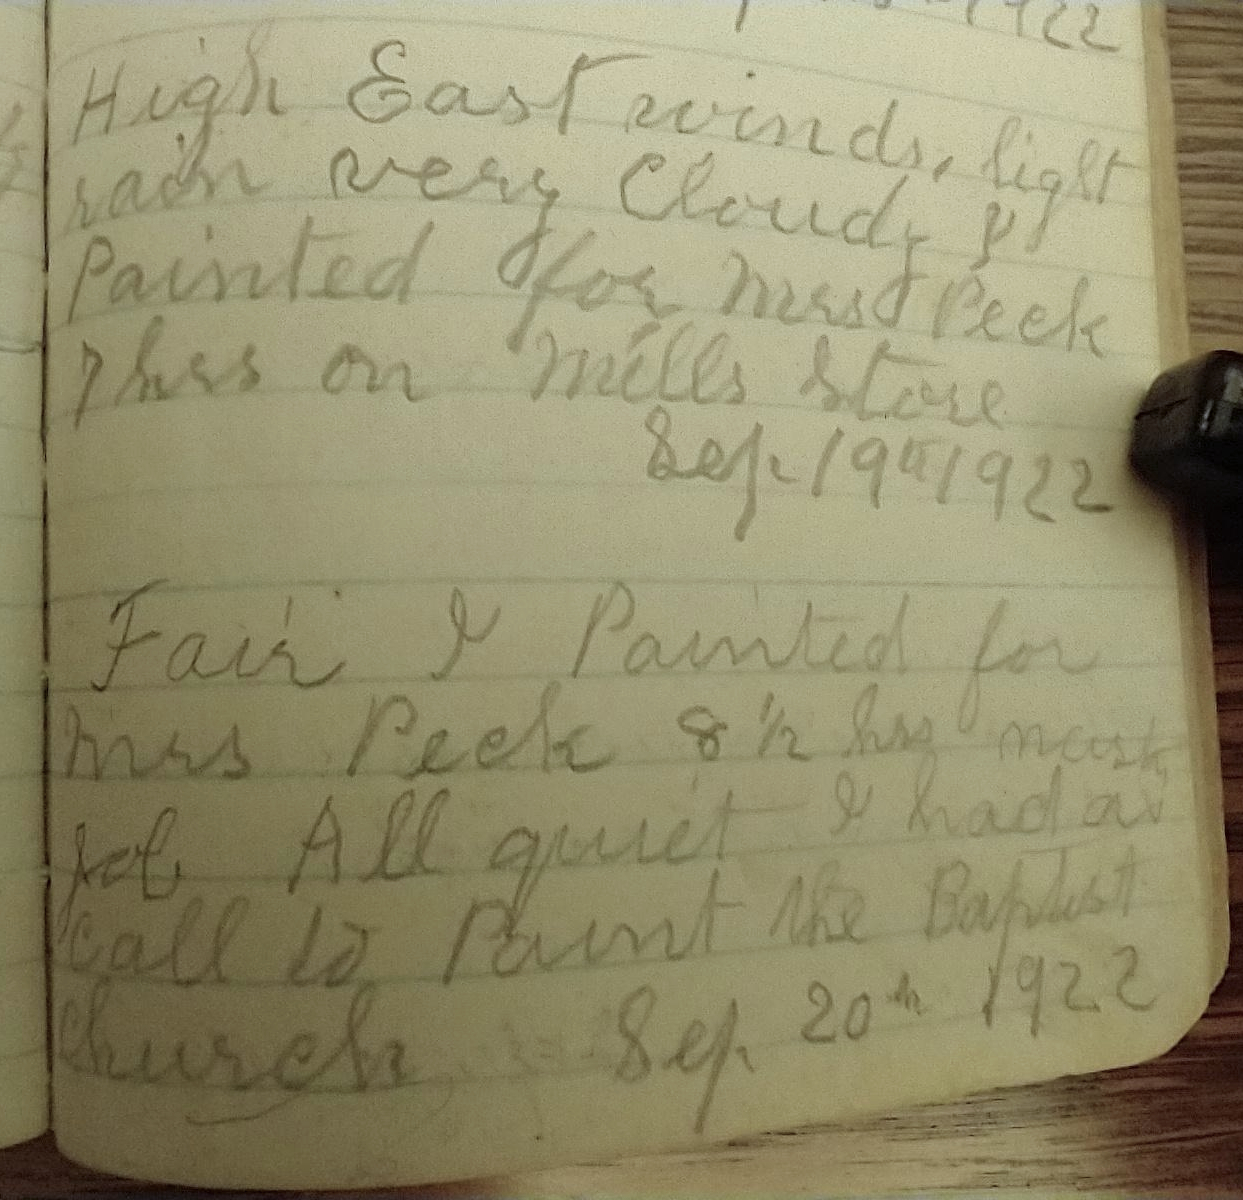 1922
High East winds, light
rain very Cloudy &
Painted for Mrs Peek
7 hrs on Mills Store
Sep. 19th 1922
Fair & Painted for
Mrs Peek 8 1/2 hrs
job All quiet & had a
Call to Paint the Baptist
Church Sep. 20th 1922